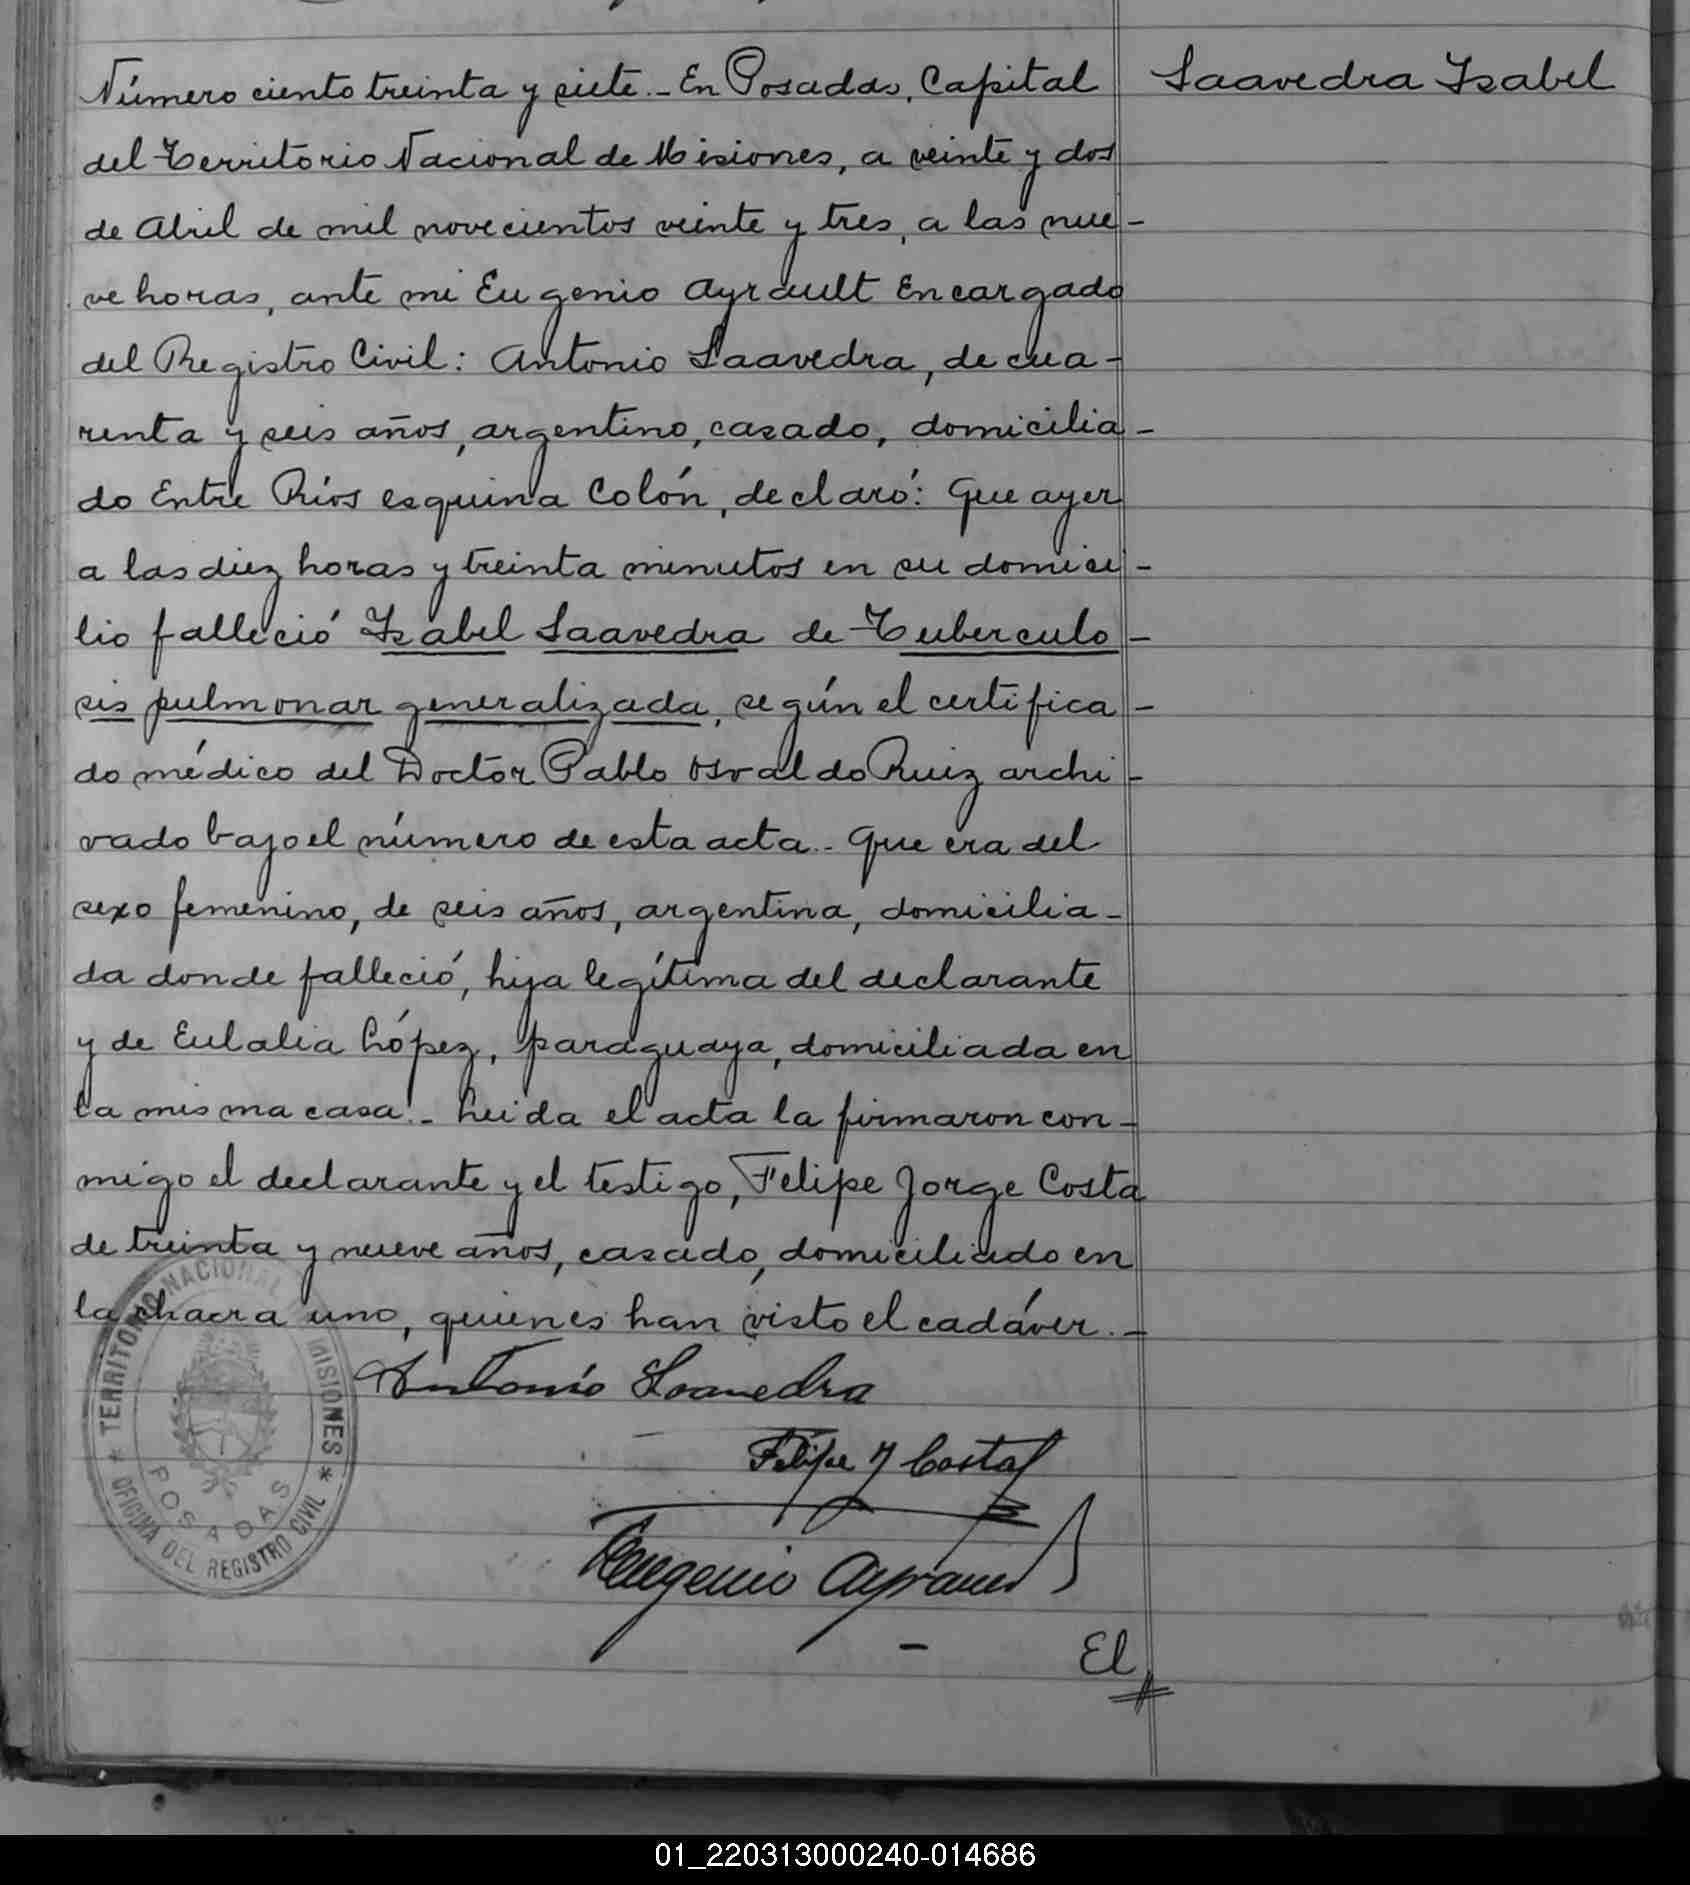 Número ciento treinta y siete.- En Posadas, Capital
Saavedra Isabel
del Territorio Nacional de Misiones, a veinte y dos
de Abril de mil novecientos veinte y tres, a las nue-
ve horas, ante mi Eugenio Ayrault Encargado
del Registro Civil: Antonio Saavedra, de cua-
renta y seis años, argentino, casado, domicilia-
do Entre Ríos esquina Colón, declaró: Que ayer
a las diez horas y treinta minutos en su domici-
lio falleció Isabel Saavedra de Tuberculo-
sis pulmonar generalizada, según el certifica-
do médico del Doctor Pablo Osvaldo Ruiz archi-
vado bajo el número de esta acta.- Que era del
sexo femenino, de seis años, argentina, domicilia-
da donde falleció, hija legítima del declarante
y de Eulalia López, paraguaya, domiciliada en
la misma casa.- Leida el acta la firmaron con-
migo el declarante y el testigo, Felipe Jorge Costa
de treinta y nueve años, casado, domiciliado en
la chacra uno, quienes han visto el cadáver.-
Antonio Saavedra
Felipe J Costa
Eugenio Ayrault
El
TERRITORIO NACIONAL DE MISIONES
POSADAS
* OFICINA DEL REGISTRO CIVIL *
01_220313000240-014686